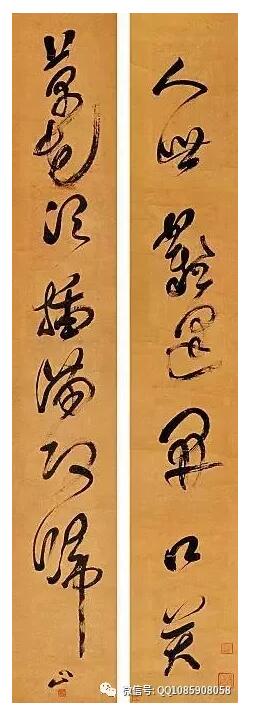 人世難逢開口笑
菊花須插滿頭歸
山
微信号: QQ1085908058